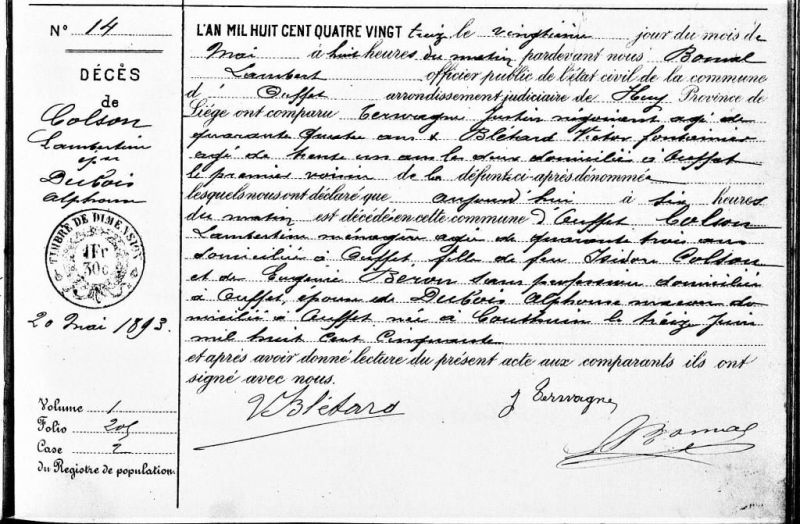 N° 14
DÉCÈS
de
Colson
Lambertine
épse
Dubois
Alphonse
TIMBRE DE DIMENSION
1Fr
30c
20 Mai 1893.
Volume 1
Folio 205
Case 2
du Registre de population.
L'AN MIL HUIT CENT QUATRE VINGT treize le vingtième jour du mois de
Mai à huit heures du matin pardevant nous Bomal
Lambert officier public de l'état civil de la commune
d' Ouffet arrondissement judiciaire de Huy Province de
Liége ont comparu Terwagne Justin négociant agé de
quarante quatre ans & Blétard Victor fontainier
agé de trente un ans les deux domiciliés à Ouffet
le premier voisin de la défunte ci-après dénommée
lesquels nous ont déclaré que aujourd'hui à six heures
du matin est décédé en cette commune d'Ouffet Colson
Lambertine ménagère agée de quarante trois ans
domiciliée à Ouffet fille de feu Isidore Colson
et de Eugénie Beron sans profession domiciliée
à Ouffet, épouse de Dubois Alphonse maçon do-
micilié à Ouffet née à Couthuin le treize Juin
mil huit cent cinquante
et après avoir donné lecture du présent acte aux comparants ils ont
signé avec nous.
V Blétard
J Terwagne
L Bomal